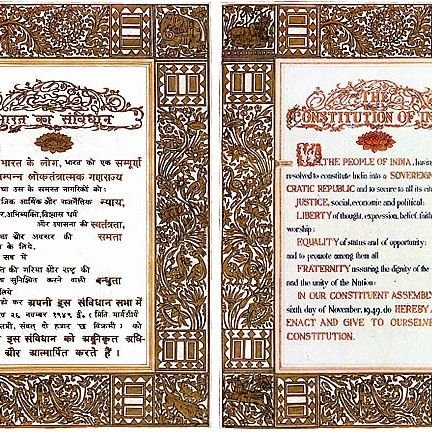 भारत का संविधान
भारत के लोग, भारत को एक सम्पूर्ण
सम्पन्न लोकतंत्रात्मक गणराज्य
उस के समस्त नागरिकों को:
आर्थिक और राजनैतिक न्याय,
अभिव्यक्ति, विश्वास धर्म
और उपासना की स्वतंत्रता,
और अवसर की समता
के लिये,
सब में
की गरिमा और राष्ट्र की
सुनिश्चित करने वाली बन्धुता
लिये
हो कर अपनी इस संविधान सभा में
२६ नवम्बर १९४९ ई. (मिति मार्गशीर्ष
संवत् दो हजार छ विक्रमी) को
इस संविधान को अङ्गीकृत अधि-
और आत्मार्पित करते हैं।
THE
CONSTITUTION OF IN
WE, THE PEOPLE OF INDIA, having
resolved to constitute India into a SOVEREIGN
CRATIC REPUBLIC and to secure to all its cit
JUSTICE, social, economic and political;
LIBERTY of thought, expression, belief, faith
worship;
EQUALITY of status and of opportunity;
and to promote among them all
FRATERNITY assuring the dignity of the
and the unity of the Nation;
IN OUR CONSTITUENT ASSEMBL
sixth day of November, 1949, do HEREBY A
ENACT AND GIVE TO OURSELVE
CONSTITUTION.